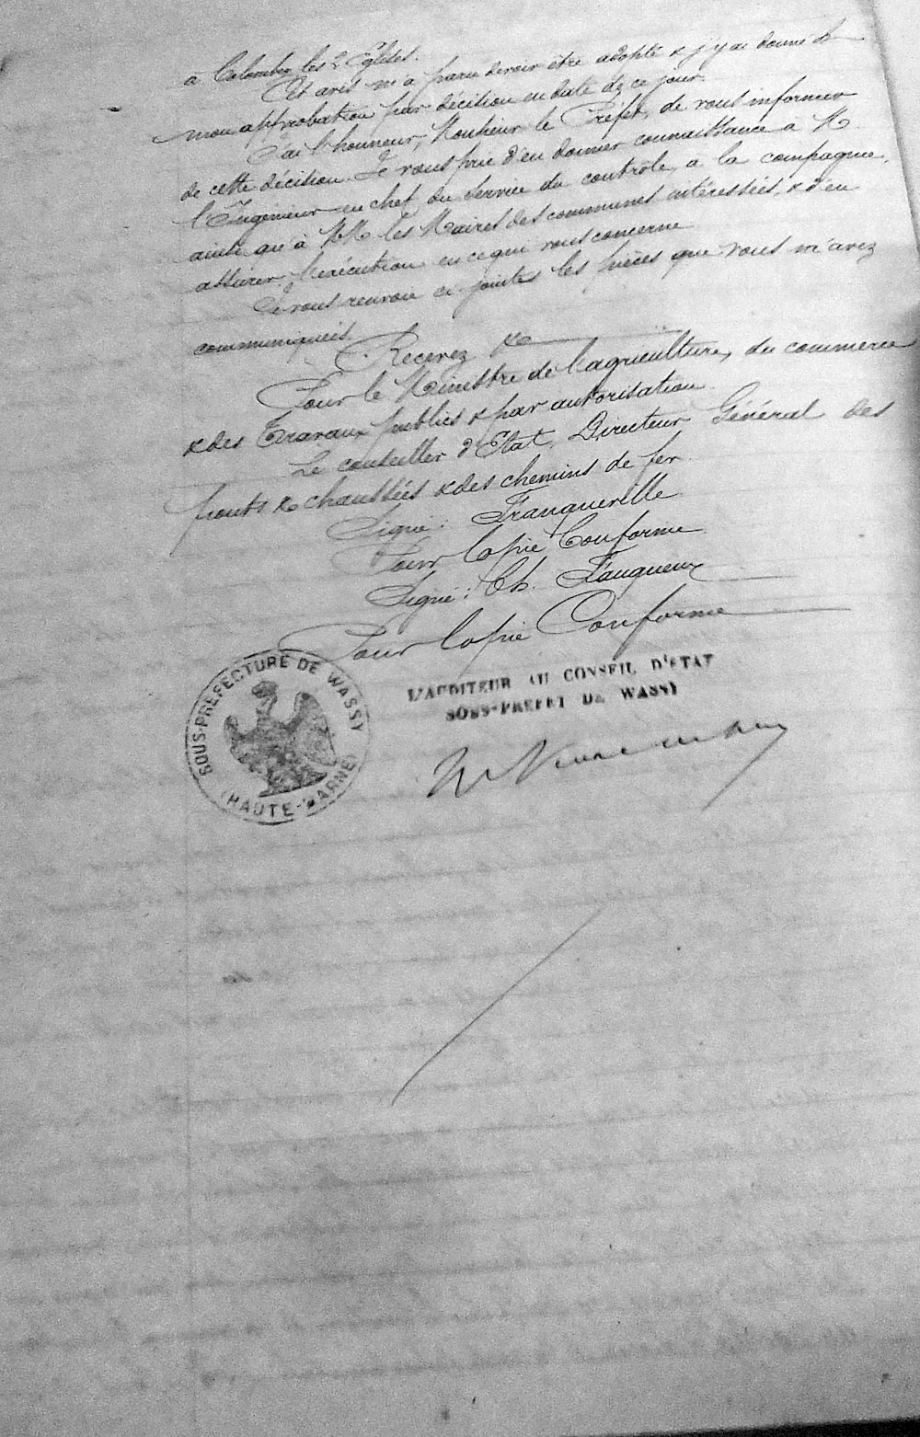 à Colombey les 2 Eglises.
Cet avis m'a paru devoir être adopté & j'y ai donné
mon approbation par décision en date de ce jour.
J'ai l'honneur, Monsieur le Préfet, de vous informer
de cette décision. Je vous prie d'en donner connaissance à M
l'Ingénieur en chef du Service du contrôle, à la compagnie,
ainsi qu'à MM les Maires des communes intéressées, & d'en
assurer l'exécution en ce qui vous concerne
Je vous renvoie ci jointes les pièces que vous m'avez
communiquées.
Recevez &c
Pour le Ministre de l'agriculture, du commerce
& des Travaux publics & par autorisation
Le conseiller d'Etat, Directeur Général des
ponts & chaussées & des chemins de fer.
Signé: Franqueville
Pour Copie Conforme
Signé: Ch. Fauqueux
Pour Copie Conforme
L'AUDITEUR AU CONSEIL D'ETAT
SOUS-PREFET DE WASSY
SOUS-PREFECTURE DE WASSY
(HAUTE-MARNE)